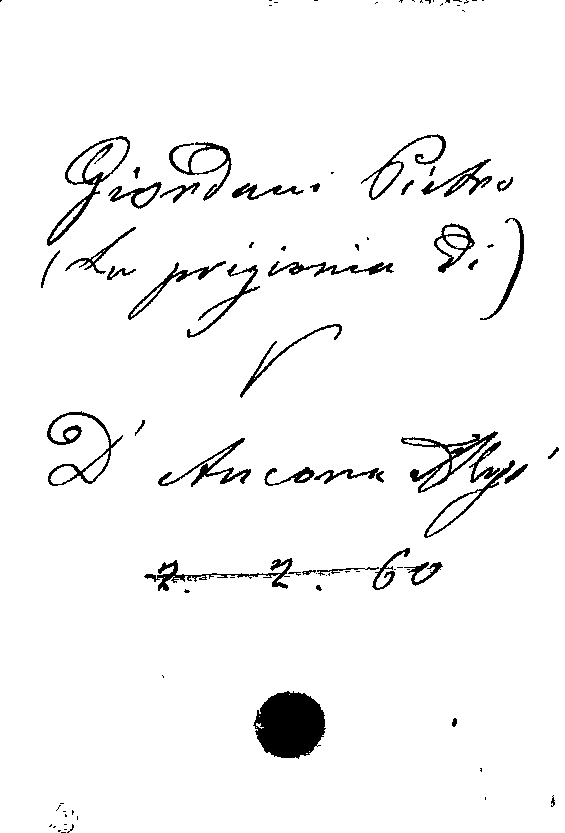 Giordani Pietro
(La prigionia di)
V
D'Ancona Aless'
7. 2. 60